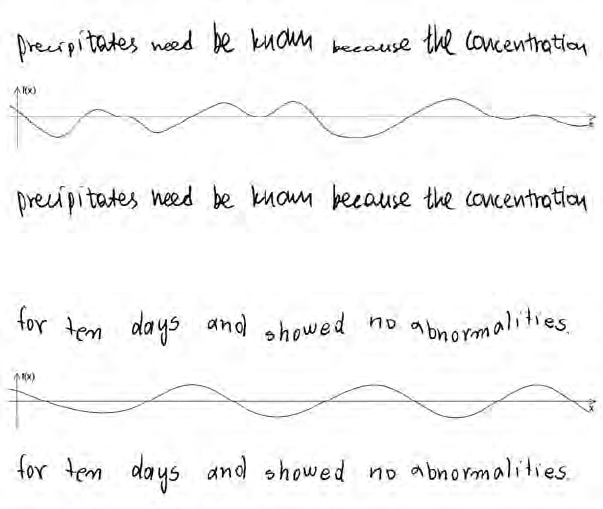 precipitates need be known because the concentration
f(x)
x
precipitates need be known because the concentration
for ten days and showed no abnormalities.
f(x)
x
for ten days and showed no abnormalities.